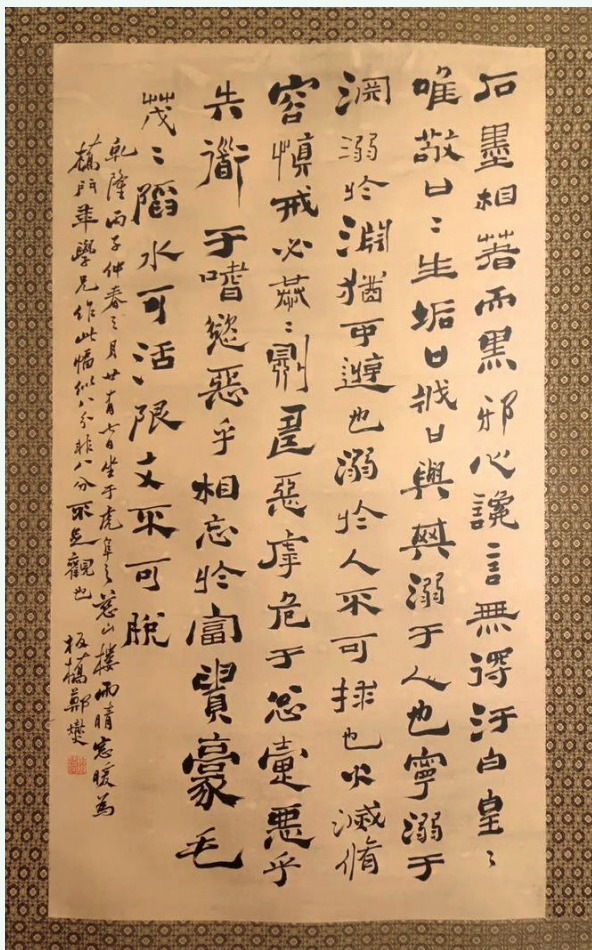 石墨相著而黑邪心讒言無得汙白皇〻
唯敬口〻生垢口戕口與其溺于人也寧溺于
淵溺於淵猶可遊也溺於人不可捄也火滅脩
容慎戒必恭〻則壽惡虖危于忿疐惡乎
失道于嗜慾惡乎相忘於富貴豪毛
茂〻陷水可活限文不可脫
乾隆丙子仲春之月廿有七日坐于虎阜之山樓雨晴窓暖為
橋門年學兄作此幅似八分非八分不足觀也 板橋鄭燮